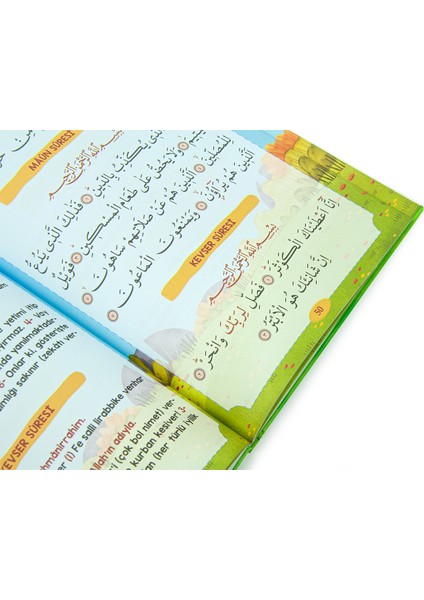 MAÛN SÛRESİ
بِسْمِ اللّٰهِ الرَّحْمٰنِ الرَّحِيمِ
يُكَذِّبُ بِالدِّينِ فَذٰلِكَ الَّذِى يَدُعُّ
وَلَا يَحُضُّ عَلٰى طَعَامِ الْمِسْكِينِ فَوَيْلٌ
لِلْمُصَلِّينَ الَّذِينَ هُمْ عَنْ صَلَاتِهِمْ سَاهُونَ
الَّذِينَ هُمْ يُرَاؤُنَ وَيَمْنَعُونَ الْمَاعُونَ
KEVSER SÛRESİ
بِسْمِ اللّٰهِ الرَّحْمٰنِ الرَّحِيمِ
اِنَّا اَعْطَيْنَاكَ الْكَوْثَرَ فَصَلِّ لِرَبِّكَ وَانْحَرْ
اِنَّ شَانِئَكَ هُوَ الْاَبْتَرُ
50
yetimi itip
yırmaz. 4- Vay
rıda yanılmaktadır
- Onlar ki, gösterişte
sakınır (zekâtı ver-
KEVSER SÛRESİ
hmânirrahîm.
(1) Fe salli lirabbike venhar
llah'ın adıyla.
(çok bol nimet) ver-
kurban kesiver! 3-
(her türlü iyilik